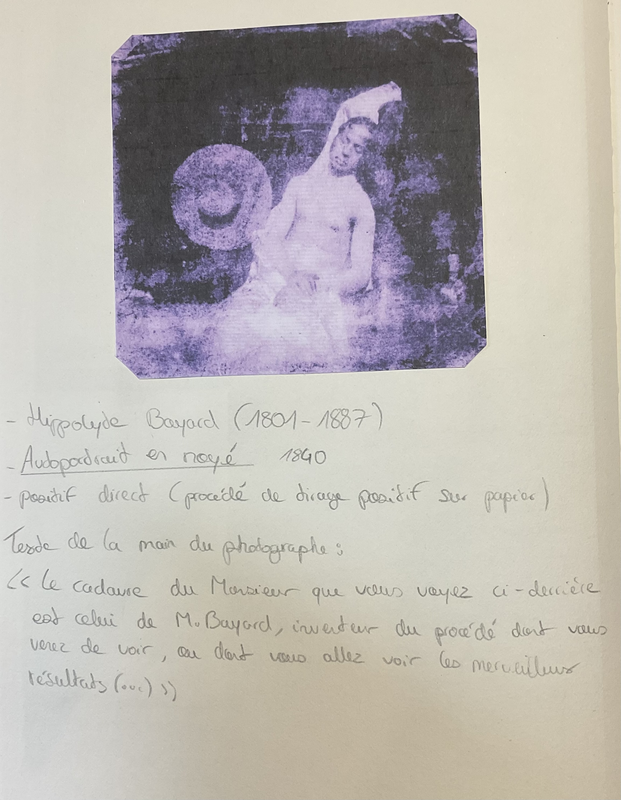 - Hippolyte Bayard (1801-1887)
- Autoportrait en noyé 1840
- positif direct (procédé de tirage positif sur papier)
Texte de la main du photographe :
<< Le cadavre du Monsieur que vous voyez ci-derrière
est celui de M. Bayard, inventeur du procédé dont vous
venez de voir, ou dont vous allez voir les merveilleux
résultats (...) >>